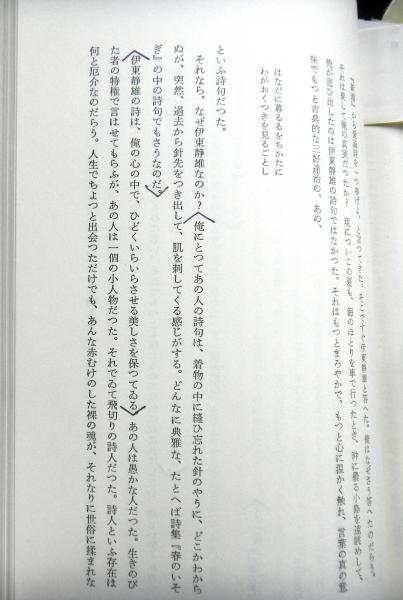 『新潮』から愛誦詩を一つ挙げよ、と言つてきた。そこですぐ伊東静雄と答へた。俺はなぜさう答へたのだらう。
それは果して俺の真実だつたか？　現についこの夏も、海のほとりを車で行つたとき、沖に霞る小島を遠眺めして、
俺が思ひ出したのは伊東静雄の詩句ではなかつた。それはもつとまろやかで、もつと心に温かく触れ、言葉の真の意
味でもつと古典的な三好達治の、あの、
はなだに暮るるをちかたに
わがおくつきを見るごとし
といふ詩句だつた。
それなら、なぜ伊東静雄なのか？〈俺にとつてあの人の詩句は、着物の中に縫ひ忘れた針のやうに、どこかわから
ぬが、突然、過去から針先をつき出して、肌を刺してくる感じがする。どんなに典雅な、たとへば詩集『春のいそ
ぎ』の中の詩句でもさうなのだ。〉
〈伊東静雄の詩は、俺の心の中で、ひどくいらいらさせる美しさを保つてゐる。〉あの人は愚かな人だつた。生きのび
た者の特権で言はせてもらふが、あの人は一個の小人物だつた。それでゐて飛切りの詩人だつた。詩人といふ存在は
何と厄介なのだらう。人生でちよつと出会つただけでも、あんな赤むけのした裸の魂が、それなりに世俗に揉まれな